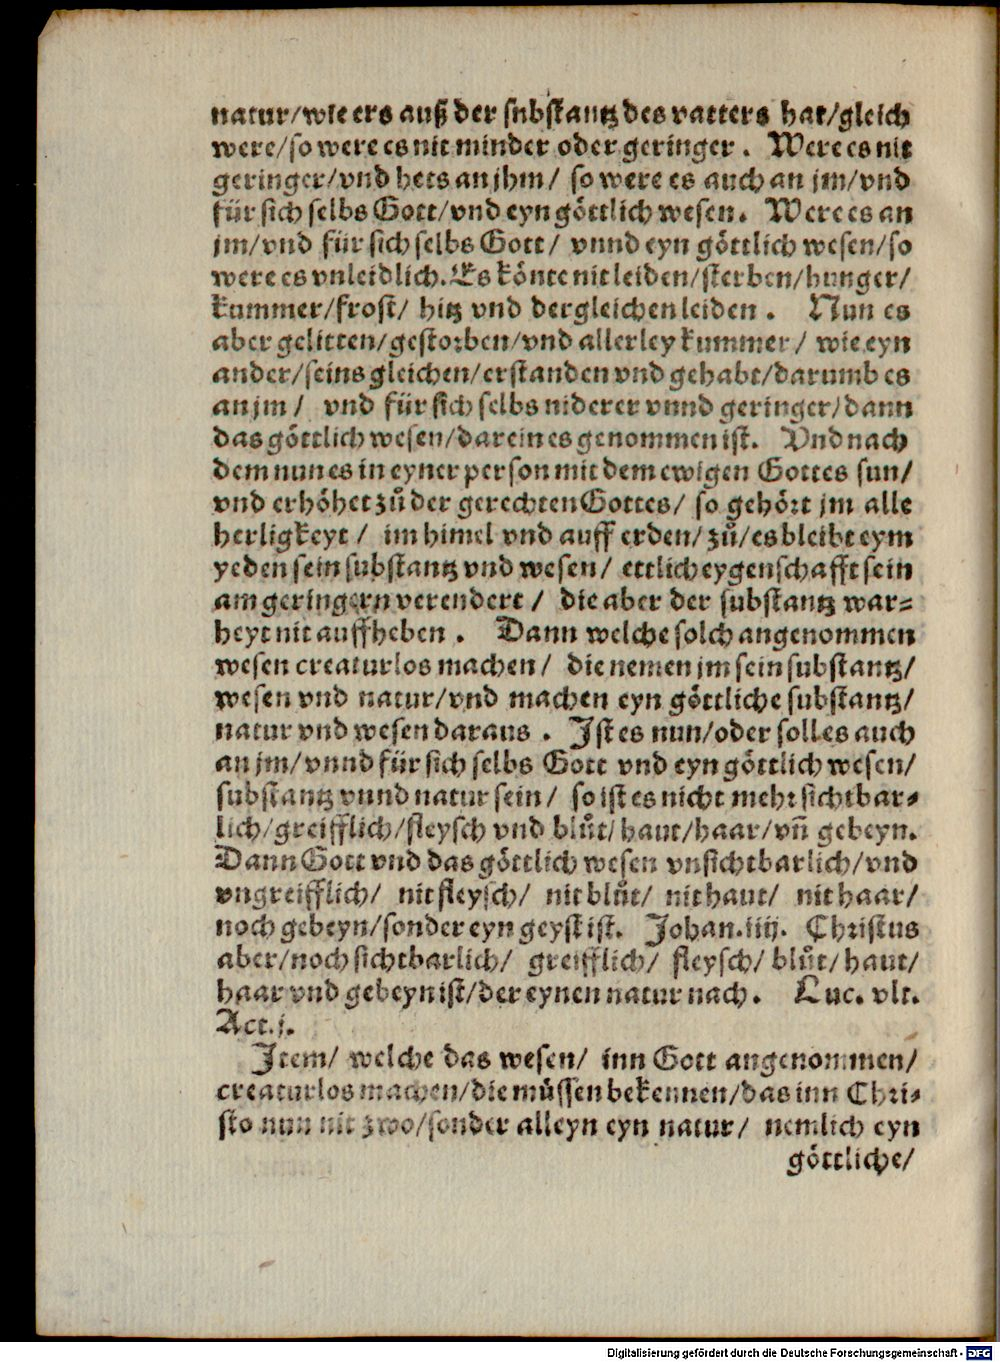 natur/wie ers auß der substantz des vatters hat/gleich
were/so were es nit minder oder geringer. Were es nit
geringer/vnd hets an jhm/ so were es auch an jm/vnd
für sich selbs Gott/vnd eyn göttlich wesen. Were es an
jm/vnd für sich selbs Gott/ vnnd eyn göttlich wesen/so
were es vnleidlich. Es könte nit leiden/sterben/hunger/
kummer/frost/ hitz vnd dergleichen leiden. Nun es
aber gelitten/gestorben/vnd allerley kummer/ wie eyn
ander/seins gleichen/erstanden vnd gehabt/darumb es
an jm/ vnd für sich selbs niderer vnnd geringer/dann
das göttlich wesen/darein es genommen ist. Vnd nach
dem nun es in eyner person mit dem ewigen Gottes sun/
vnd erhöhet zů der gerechten Gottes/ so gehört jm alle
herligkeyt/ im himel vnd auff erden/zů/es bleibt eym
yeden sein substantz vnd wesen/ ettlich eygenschafft sein
am geringern verendert/ die aber der substantz war=
heyt nit auffheben. Dann welche solch angenommen
wesen creaturlos machen/ die nemen jm sein substantz/
wesen vnd natur/vnd machen eyn göttliche substantz/
natur vnd wesen daraus. Ist es nun/oder soll es auch
an jm/vnnd für sich selbs Gott vnd eyn göttlich wesen/
substantz vnnd natur sein/ so ist es nicht mehr sichtbar=
lich/greifflich/fleysch vnd blůt/haut/haar/vñ gebeyn.
Dann Gott vnd das göttlich wesen vnsichtbarlich/vnd
vngreifflich/ nit fleysch/ nit blůt/ nit haut/ nit haar/
noch gebeyn/sonder eyn geyst ist. Johan.iiij. Christus
aber/noch sichtbarlich/ greifflich/ fleysch/ blůt/haut/
haar vnd gebeyn ist/der eynen natur nach. Luc. vlt.
Act.j.
Item/ welche das wesen/ inn Gott angenommen/
creaturlos machen/die müssen bekennen/das inn Chri=
sto nun nit zwo/sonder alleyn eyn natur/ nemlich eyn
göttliche/
Digitalisierung gefördert durch die Deutsche Forschungsgemeinschaft - DFG